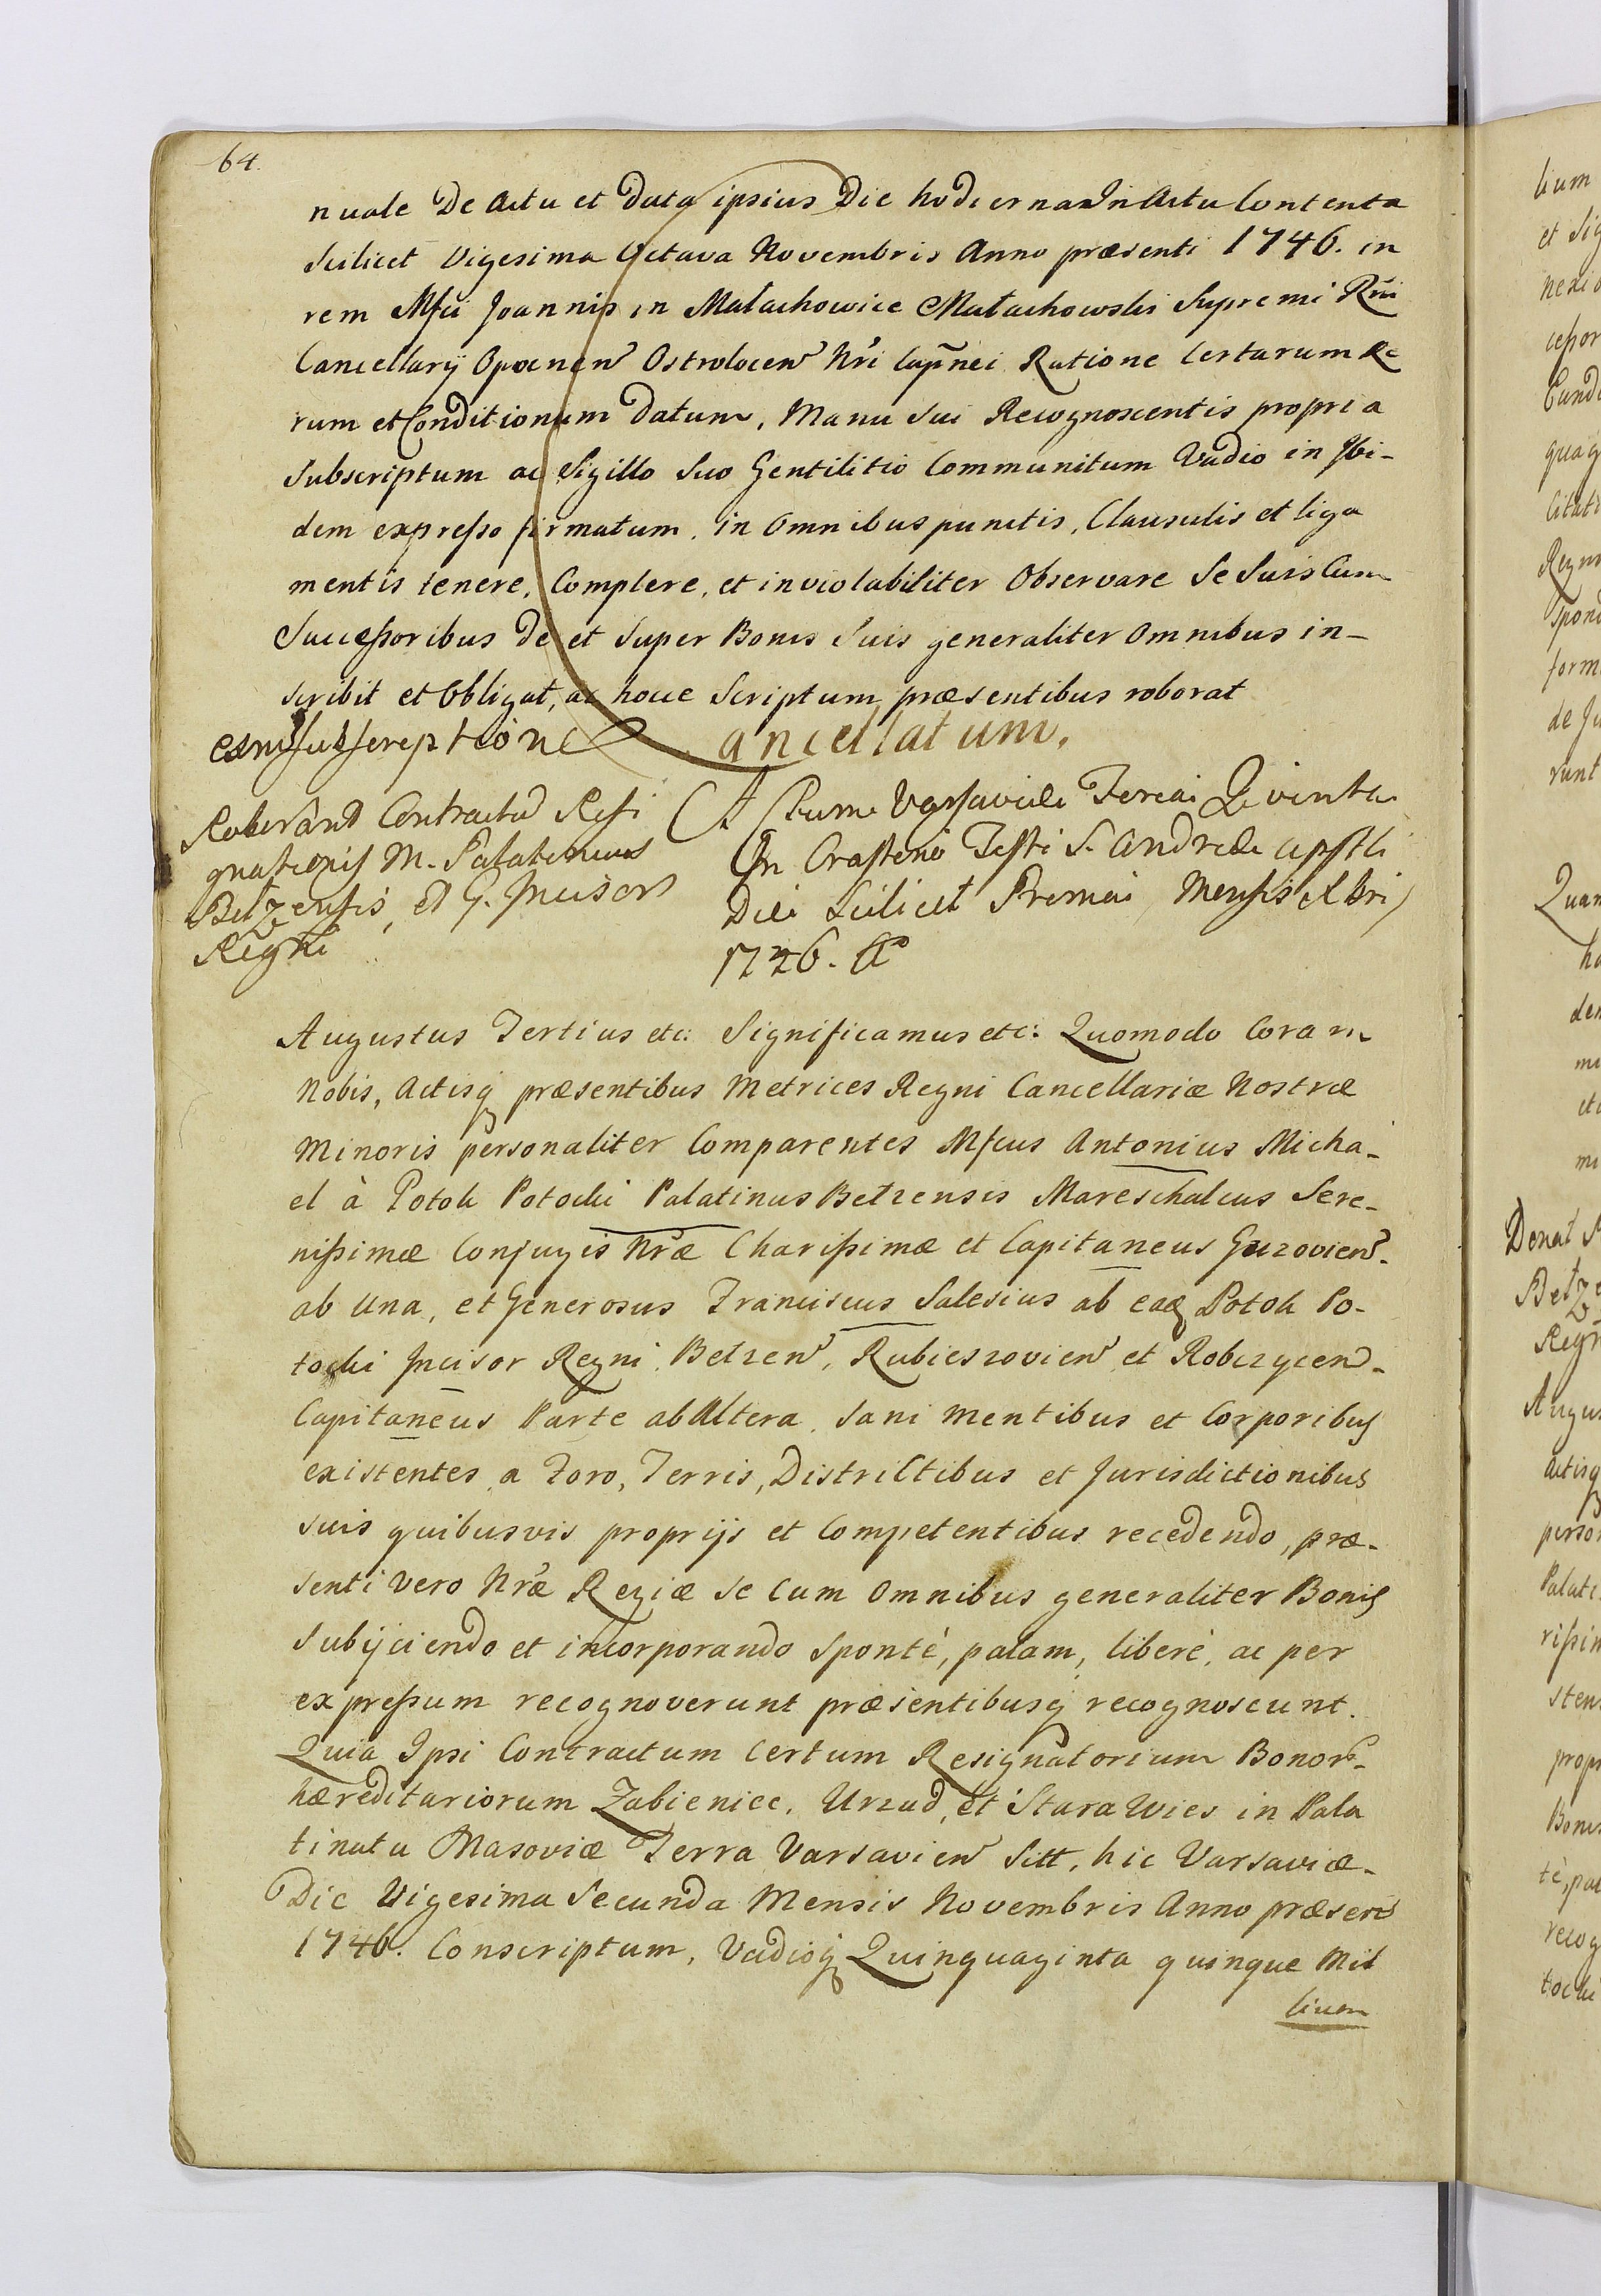 64.
nuale De Actu et Data ipsius Die hodierna In Actu Contenta
Scilicet Vigesima Octava Novembris Anno præsenti 1746. in
rem Mfci Joannis in Małachowice Małachowski Supremi Rni
Cancellarÿ Opocnen Ostrolocen Nri Capnei Ratione Certarum Re
rum et Conditionum Datum, Manu Sui Recognoscentis propria
Subscriptum ac Sigillo Suo Gentilitio Communitum Vadio in Ibi-
dem expresso firmatum. in Omnibus punctis, Clausulis et liga
mentis tenere, Complere, et inviolabiliter Observare Se Suis Cum
Successoribus De et Super Bonis Suis generaliter Omnibus in-
scribit et Obligat, ac hocce Scriptum præsentibus roborat
Subscriptione Cancellatum.
Roborand Contractus Resi
gnationis M. Palatinus
Bełzensis, et G. Incisor
Regni
Actum Varsaviæ Feria Quinta
In Crastino Festi S. Andreæ Apstli
Die Scilicet Prima Mensis Xbris
1746. Ao
Augustus Tertius etc: Significamus etc: Quomodo Coram
Nobis, Actisq præsentibus Metrices Regni Cancellariæ Nostræ
Minoris personaliter Comparentes Mfcus Antonius Micha-
el à Potok Potocki Palatinus Bełzensis Mareschalcus Sere-
nissimæ Conjugis Nræ Charissimæ et Capitaneus Guzovien.
ab una, et Generosus Franciscus Salesius ab eaq Potok Po-
tocki Incisor Regni, Bełzen, Rubieszovien et Robczycen-
Capitaneus Parte ab Altera. Sani mentibus et Corporibus
existentes, a Foro, Terris, Districtibus et Jurisdictionibus
suis quibusvis proprijs et Competentibus recedendo, præ-
senti vero Nræ Regiæ se Cum Omnibus generaliter Bonis
Subijciendo et incorporando Spontè, palam, liberè, ac per
expressum recognoverunt præsentibusq recognoscunt.
Quia Ipsi Contractum Certum Resignatorium Bonor.
hæreditariorum Zabieniec, Urzud, et Stara Wies in Pala
tinatu Masoviæ Terra Varsavien Sitt, hic Varsaviæ-
Die Vigesima Secunda Mensis Novembris Anno præsen
1746. Conscriptum, Vadioq Quinquaginta quinque Mil
lium
lium
et Sig
nexio
cessor
quaq
Citati
Regni
spond
form
de Ju
runt
Quam
Donat
Bełze
Regn
Augus
Actisq
person
Palati
rissim
sten
propr
Bonis
tè, pal
recog
tocki